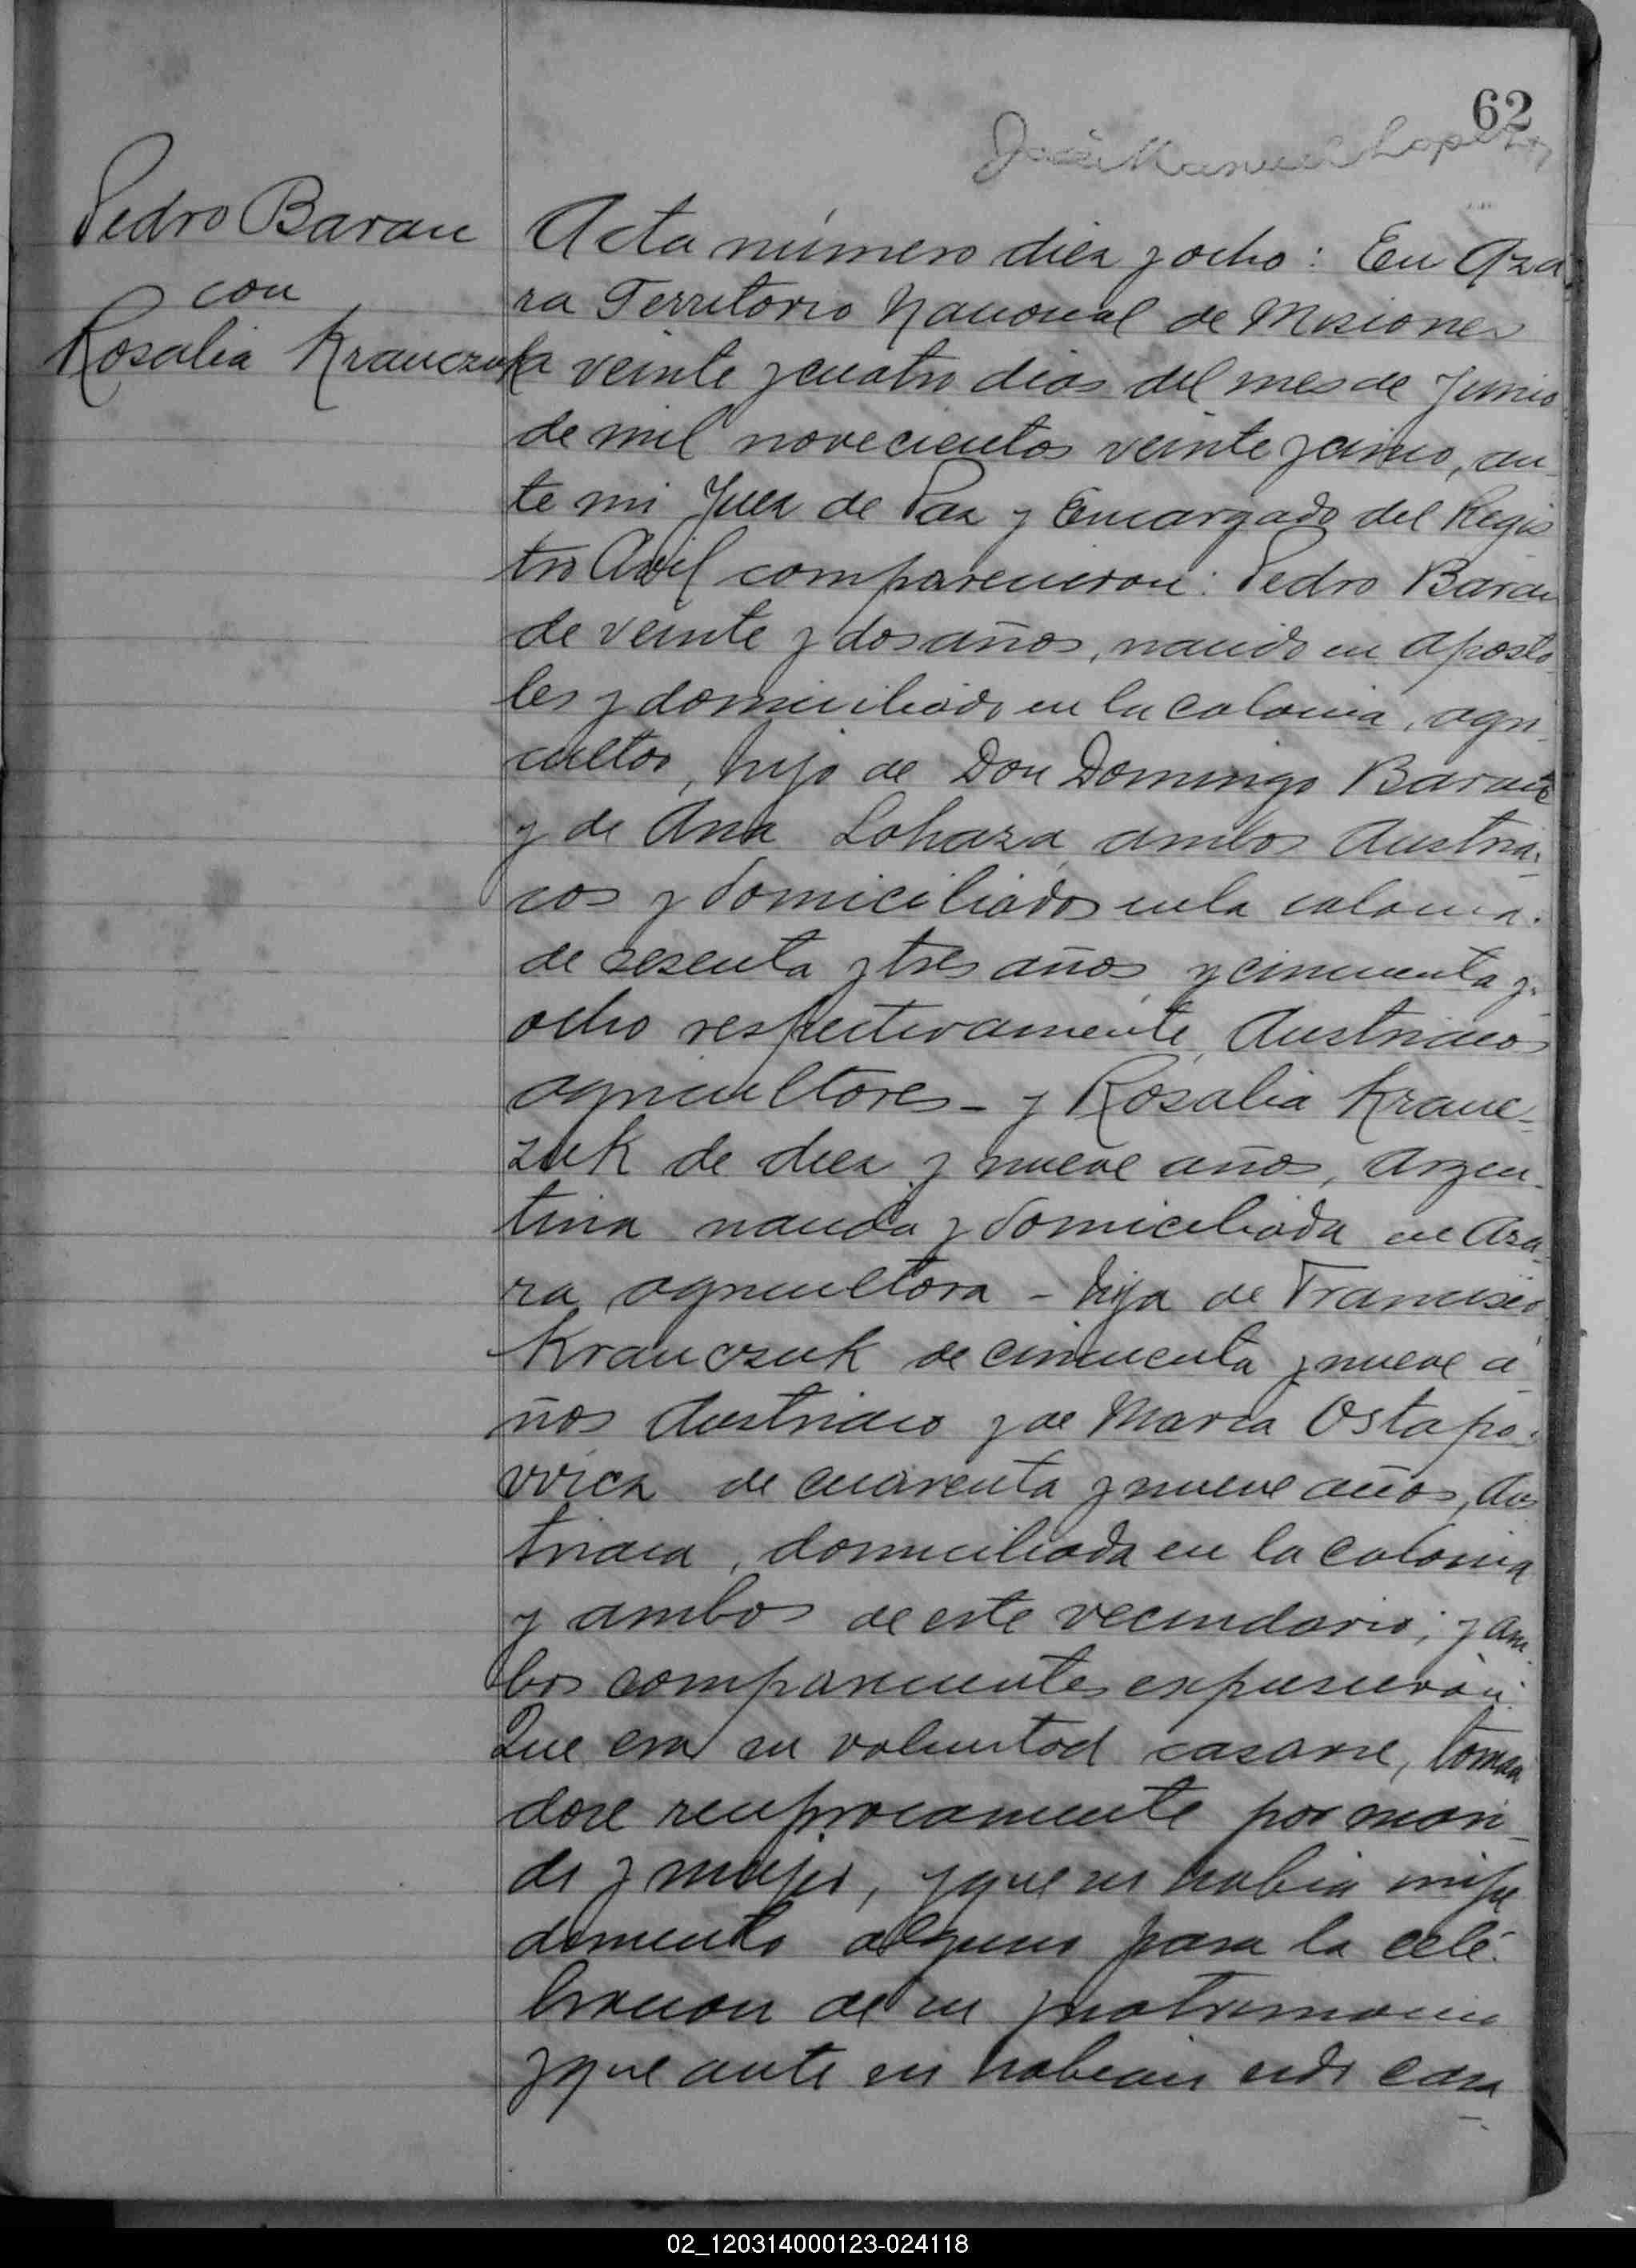 62
José Manuel Lopez
Pedro Baran
con
Rosalia Kranczuk
Acta número diez y ocho: En Aza
ra Territorio Nacional de Misiones
a veinte y cuatro dias del mes de Junio
de mil novecientos veinte y cinco, an
te mi Juez de Paz y Encargado del Regis
tro Civil comparecieron: Pedro Baran
de veinte y dos años, nacido en Aposto
les y domiciliado en la colonia, agri
cultor, hijo de Don Domingo Baran
y de Ana Lohaza, ambos Austria
cos y domiciliados en la colonia.
de sesenta y tres años y cincuenta y
ocho respectivamente, Austriacos
agricultores - y Rosalia Kranc-
zuk de diez y nueve años, Argen-
tina nacida y domiciliada en Aza
ra, agricultora - hija de Francisco
Kranczuk de cincuenta y nueve a
ños Austriaco y de Maria Ostapo-
wicz de cuarenta y nueve años, Aus
triaca, domiciliada en la colonia
y ambos de este vecindario; y am
bos comparecientes expusieron:
Que era su voluntad casarse, toman
dose reciprocamente por mari-
do y mujer, y que no habia impe
dimento alguno para la cele-
bracion de su matrimonio
y que ante si habian sido casa
02_120314000123-024118